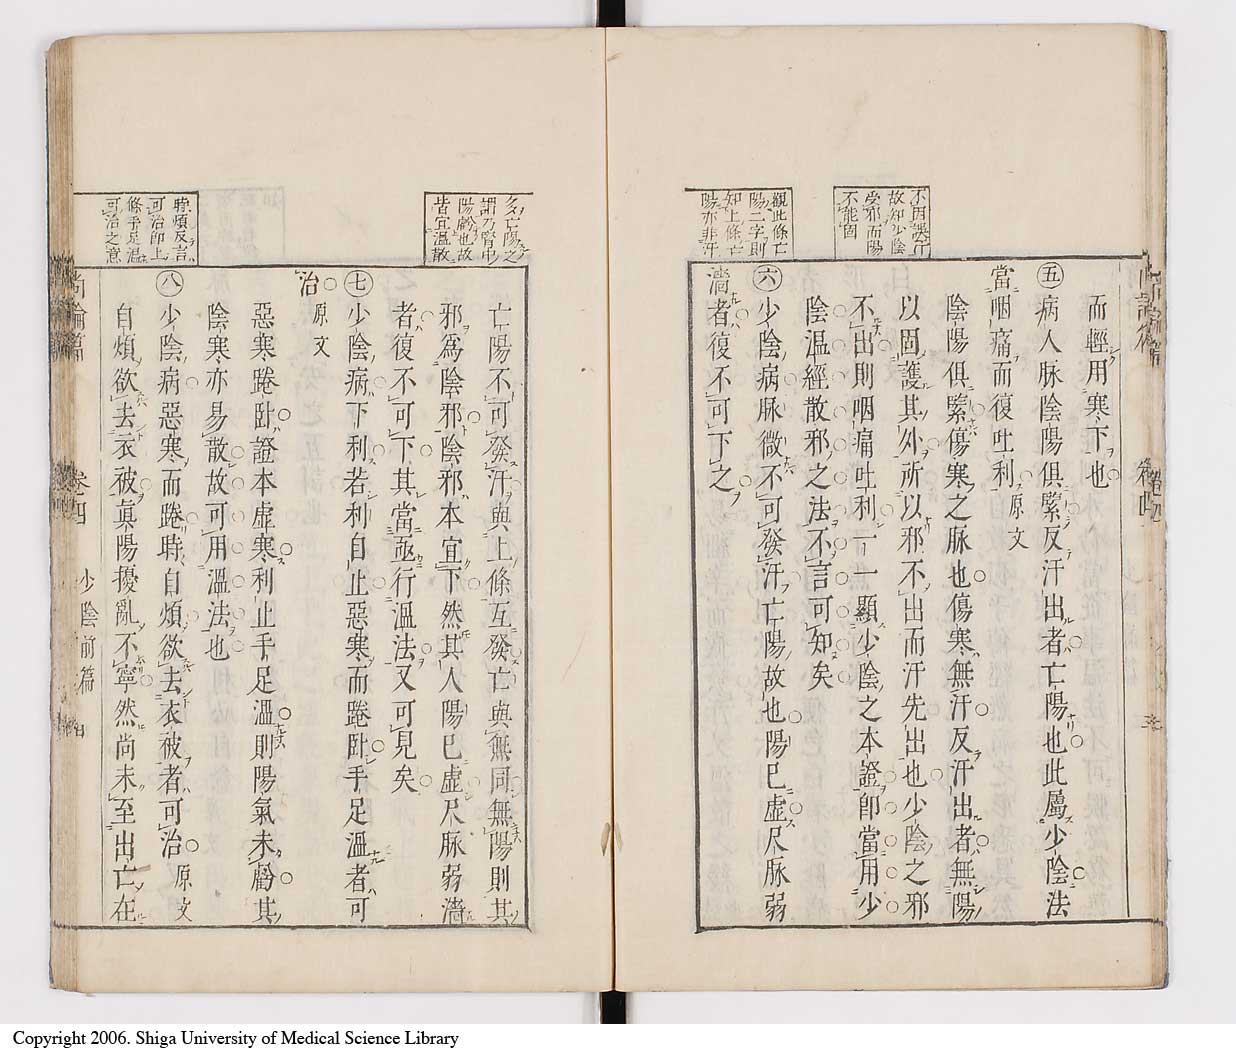 不因誤汗
故知少陰
受邪而陽
不能固
觀此條亡
陽二字則
知上條亡
陽亦非汗
而輕用寒下也
㊄病人脉陰陽俱緊反汗出者亡陽也此屬少陰法
當咽痛而復吐利原文
陰陽俱緊傷寒之脉也傷寒無汗反汗出者無陽
以固護其外所以邪不出而汗先出也少陰之邪
不出則咽痛吐利一一顯少陰之本證即當用少
陰温經散邪之法不言可知矣
㊅少陰病脉微不可發汗亡陽故也陽已虛尺脉弱
濇者復不可下之
多亡陽之
謂乃腎中
陽虧也故
皆宜温散
亡陽不可發汗與上條互發亡與無同無陽則其
邪爲陰邪陰邪本宜下然其人陽已虛尺脉弱濇
者復不可下其當亟行溫法又可見矣
㊆少陰病下利若利自止惡寒而踡臥手足溫者可
治原文
惡寒踡臥證本虛寒利止手足溫則陽氣未虧其
陰寒亦易散故可用溫法也
時煩反言
可治即上
條手足温
可治之意
㊇少陰病惡寒而踡時自煩欲去衣被者可治原文
自煩欲去衣被眞陽擾亂不寧然尚未至出亡在
尚論篇 卷四 少陰前篇
Copyright 2006. Shiga University of Medical Science Library